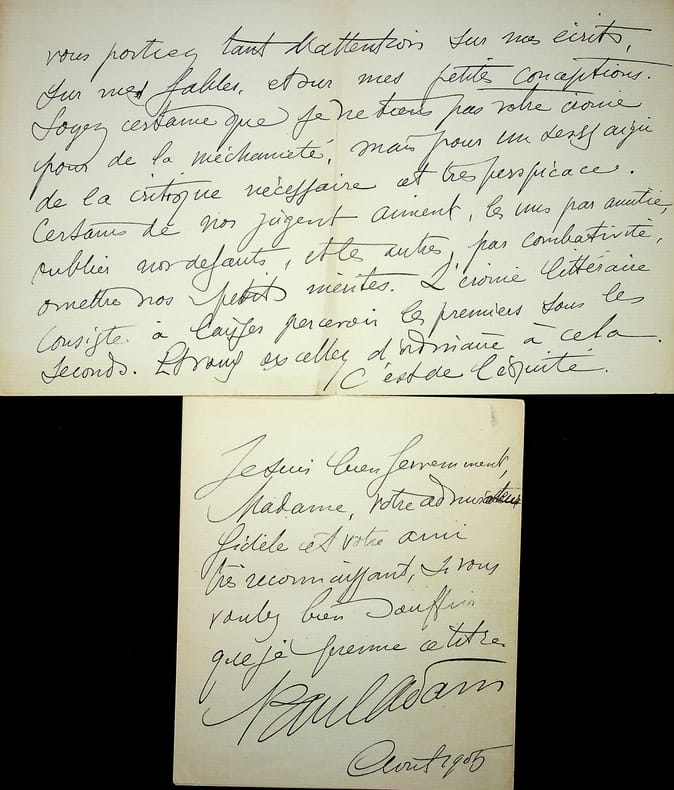 vous portiez tant d'attention sur mes écrits,
sur mes fables, et sur mes petites conceptions.
Soyez certaine que je ne tiens pas votre ironie
pour de la méchanceté, mais pour un sens aigu
de la critique nécessaire et très perspicace.
Certains de nos jugent aiment, les uns par amitié,
oublier nos défauts, et les autres, par combativité,
omettre nos petits mérites. L'ironie littéraire
consiste à laisser percevoir les premiers sous les
seconds. Et vous excellez d'ordinaire à cela.
C'est de l'équité.
Je suis bien fervemment,
Madame, votre admirateur
fidèle et votre ami
très reconnaissant, si vous
voulez bien souffrir
que je prenne ce titre.
Paul Adam
Août 1905